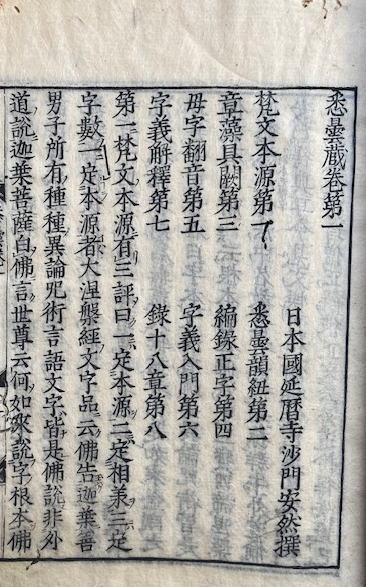 悉曇藏卷第一
日本國延曆寺沙門安然撰
梵文本源第一 悉曇韻紐第二
章藻具闕第三 編錄正字第四
母字翻音第五 字義入門第六
字義解釋第七 錄十八章第八
第一梵文本源有三評曰一定本源二定相承三定
字數一定本源者大涅槃經文字品云佛告迦葉善
男子所有種種異論咒術言語文字皆是佛說非外
道說迦葉菩薩白佛言世尊云何如來說字根本佛